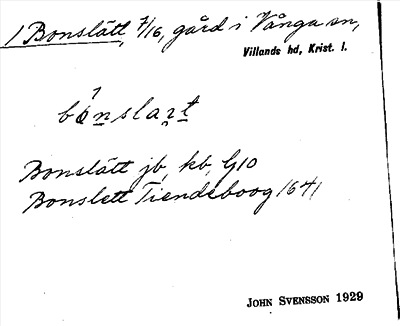 1 Bonslätt, 7/16, gård i Vånga sn,
Villands hd, Krist. l.
Bonslätt jb, kb, G10
Bonslett Tiendeboog 1641
JOHN SVENSSON 1929